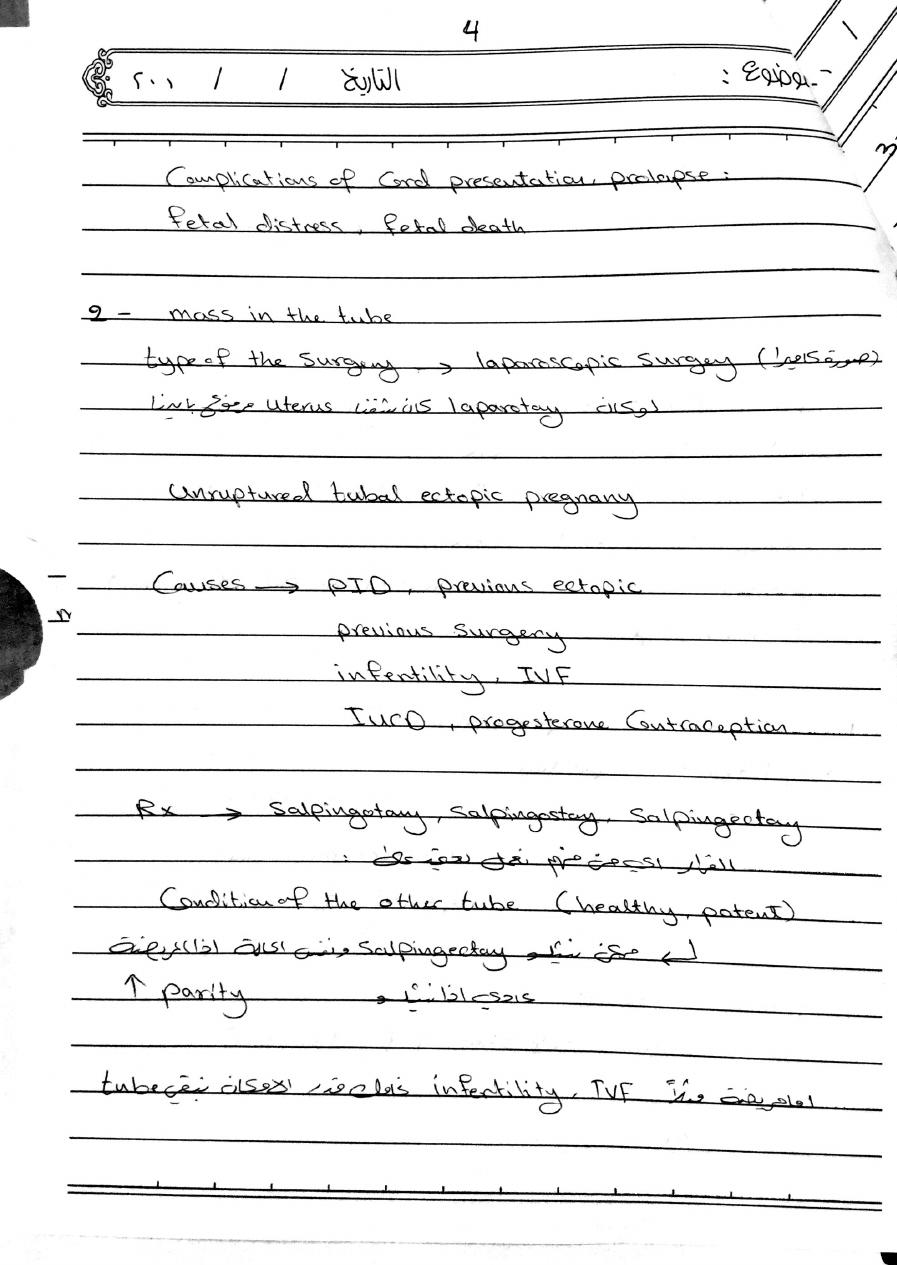 4
الموضوع :
التاريخ / / ٢٠١
Complications of Cord presentation, prolapse :
fetal distress, fetal death
9 - mass in the tube
type of the Surgery → laparoscopic surgey (صورة كاميرا)
لو كان laparotay كان شفنا uterus مرفوع بايدنا
Unruptured tubal ectopic pregnany
Causes → PID, previous ectopic
previous surgery
infertility, IVF
IUCD, progesterone Contraception
Rx → Salpingotamy, Salpingostay, Salpingectay
القرار نعمل على :
Condition of the other tube (healthy, patent)
ممكن نشيلو Salpingectay ونفس الحالة اذا المريضة
↑ parity عادي اذا نشيلو
اما مريضة مثلاً infertility, IVF نحاول قدر الامكان نبقي tube